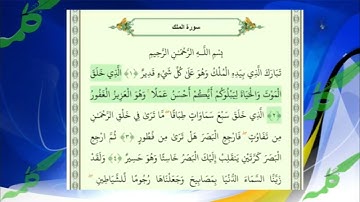 سورة الملك
بِسْمِ اللَّـهِ الرَّحْمَـٰنِ الرَّحِيمِ
تَبَارَكَ الَّذِي بِيَدِهِ الْمُلْكُ وَهُوَ عَلَىٰ كُلِّ شَيْءٍ قَدِيرٌ ﴿١﴾ الَّذِي خَلَقَ
الْمَوْتَ وَالْحَيَاةَ لِيَبْلُوَكُمْ أَيُّكُمْ أَحْسَنُ عَمَلًا ۚ وَهُوَ الْعَزِيزُ الْغَفُورُ
﴿٢﴾ الَّذِي خَلَقَ سَبْعَ سَمَاوَاتٍ طِبَاقًا ۖ مَّا تَرَىٰ فِي خَلْقِ الرَّحْمَـٰنِ
مِن تَفَاوُتٍ ۖ فَارْجِعِ الْبَصَرَ هَلْ تَرَىٰ مِن فُطُورٍ ﴿٣﴾ ثُمَّ ارْجِعِ
الْبَصَرَ كَرَّتَيْنِ يَنقَلِبْ إِلَيْكَ الْبَصَرُ خَاسِئًا وَهُوَ حَسِيرٌ ﴿٤﴾ وَلَقَدْ
زَيَّنَّا السَّمَاءَ الدُّنْيَا بِمَصَابِيحَ وَجَعَلْنَاهَا رُجُومًا لِّلشَّيَاطِينِ ۖ